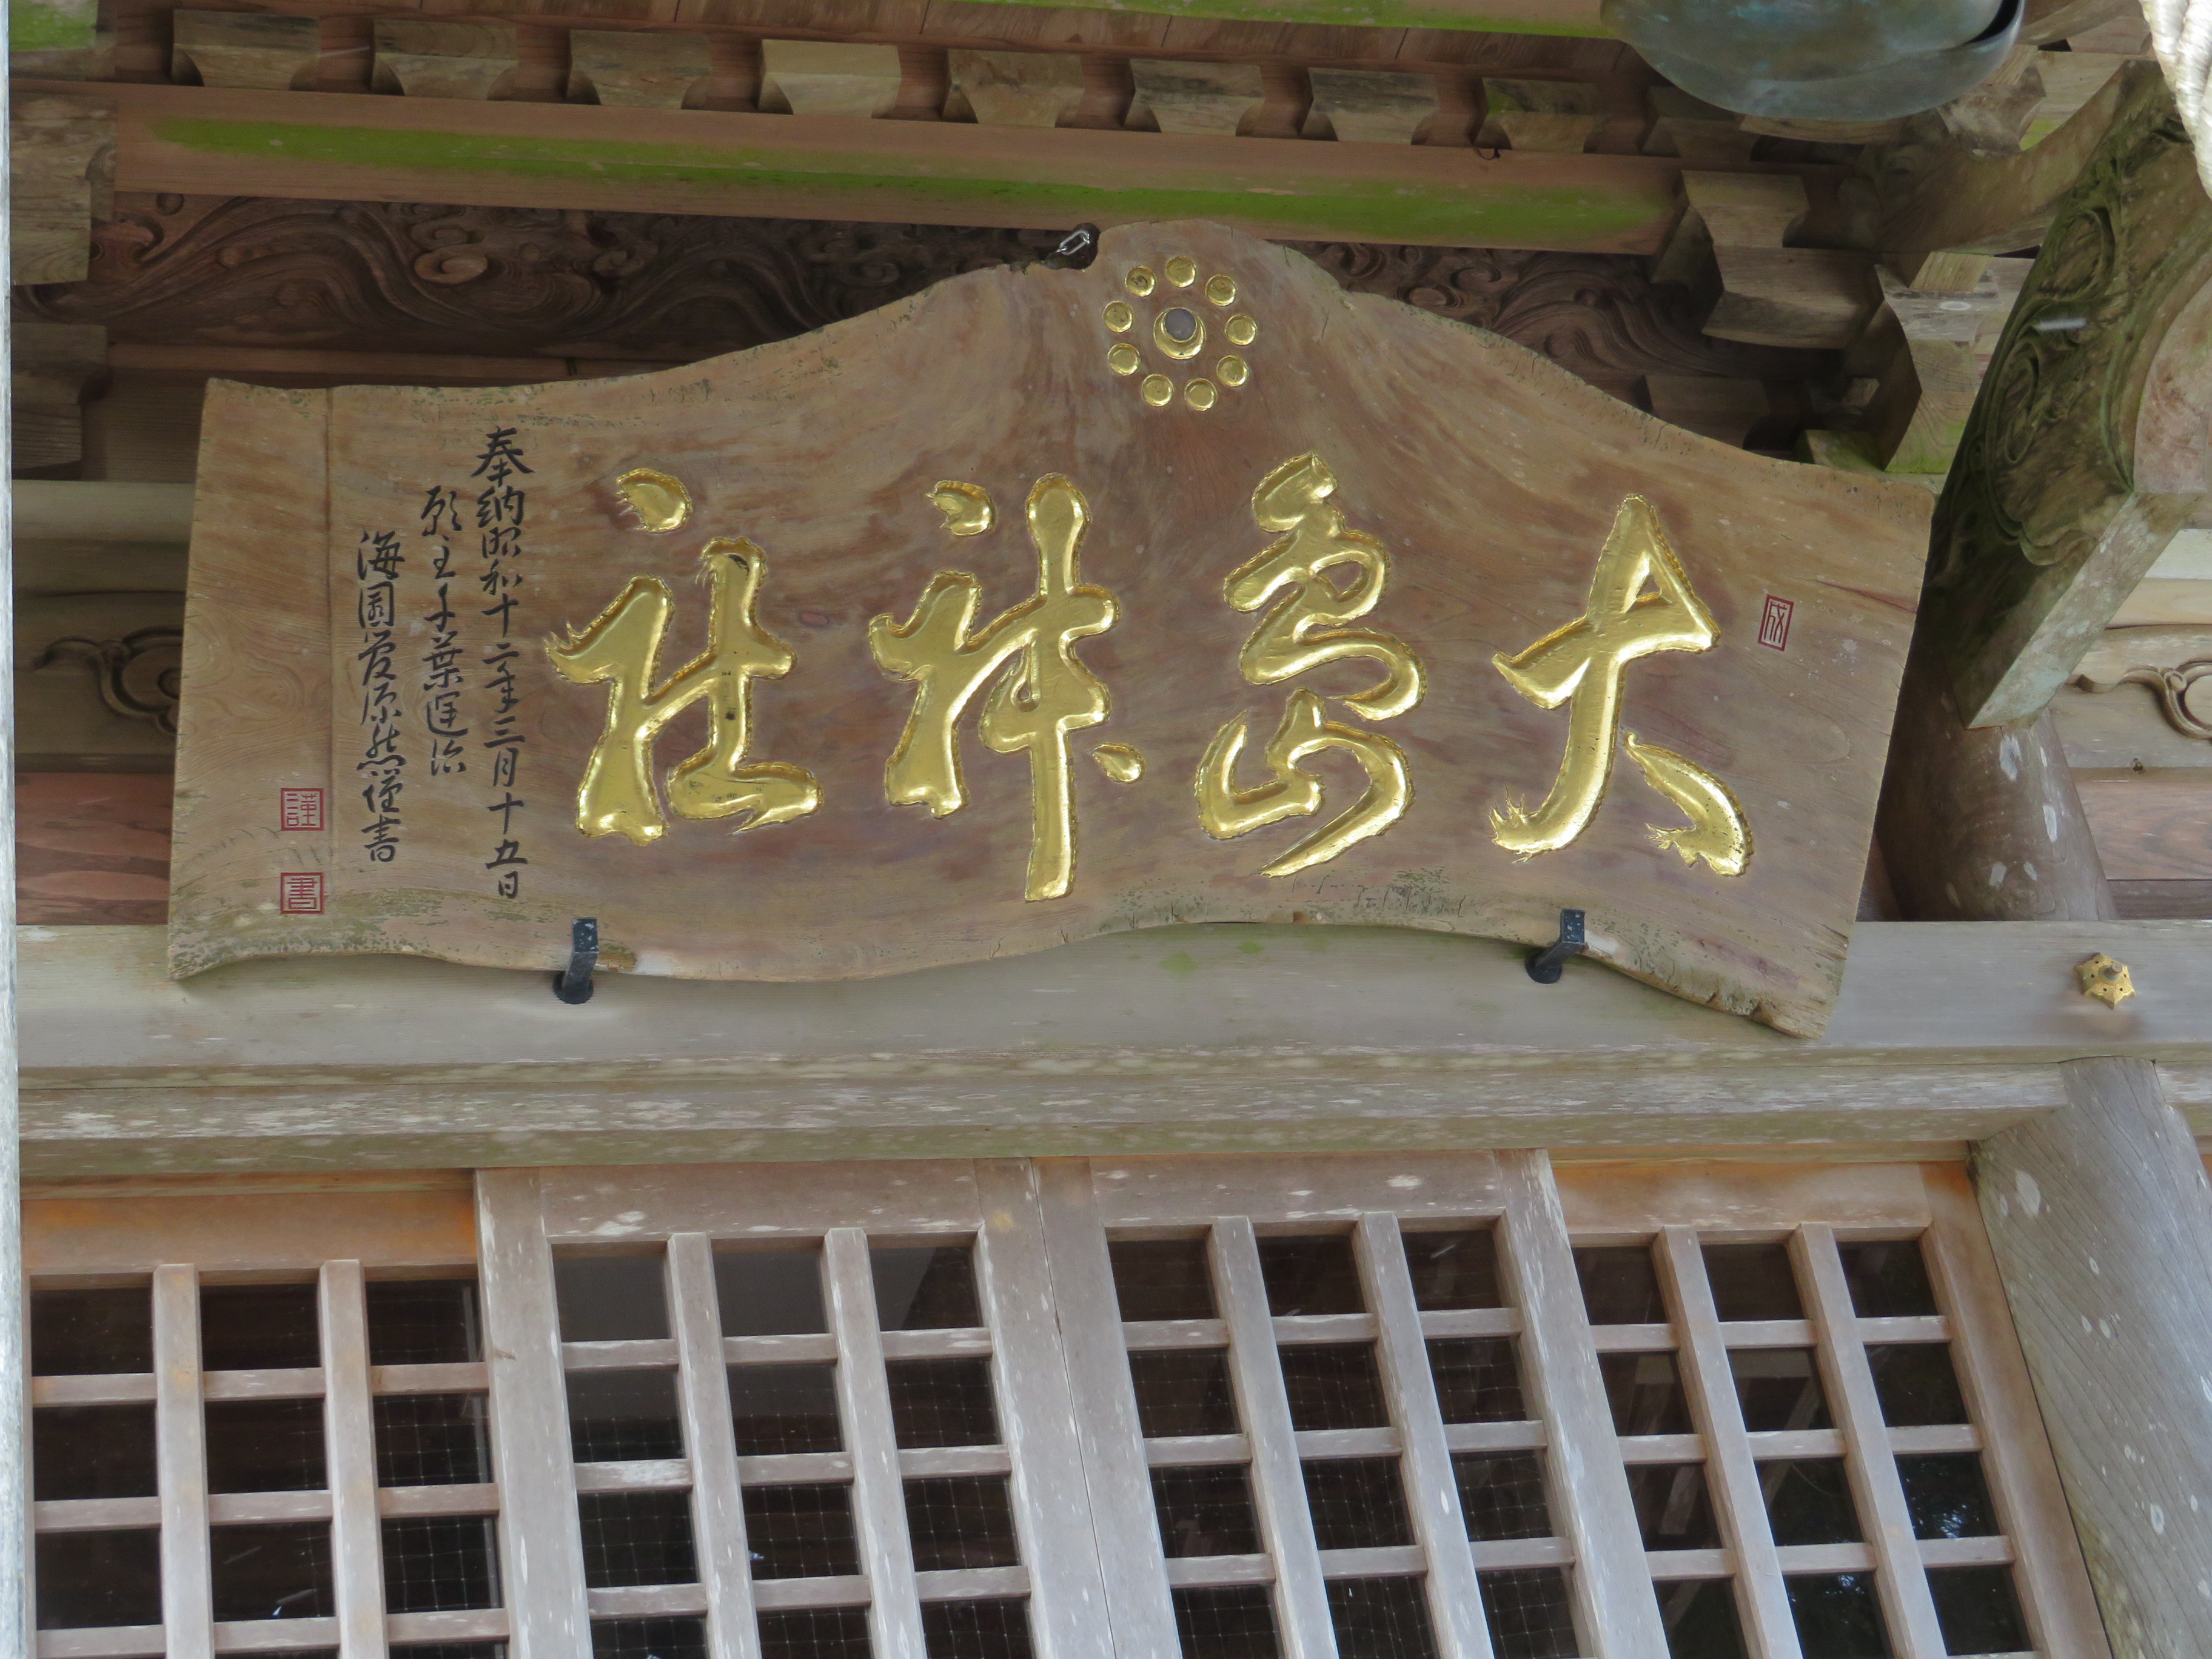 大島神社
奉納昭和十二年三月十五日
願主千葉運治
海原謹書
成
謹
書